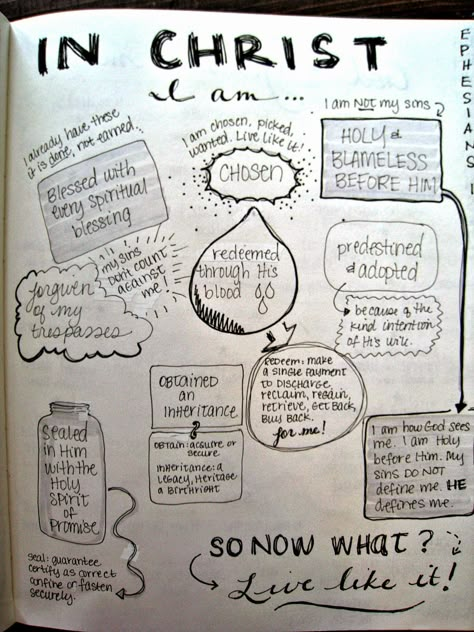 IN CHRIST
I am...
EPHESIANS
I already have these
it is done, not earned...
Blessed with
every spiritual
blessing
I am chosen, picked,
wanted. Live like it!
CHOSEN
I am NOT my sins
HOLY &
BLAMELESS
BEFORE HIM
forgiven
of my
trespasses
my sins
don't count
against
me!
redeemed
through His
blood
predestined
& adopted
because of the
kind intention
of His will.
Redeem: make
a single payment
to discharge,
reclaim, regain,
retrieve, get back,
buy back.
for me!
OBTAINED
AN
INHERITANCE
Obtain: acquire or
secure
Inheritance: a
legacy, heritage
a birthright
Sealed
in Him
with the
Holy
Spirit
of
Promise
seal: guarantee
certify as correct
confine or fasten
securely.
I am how God sees
me. I am Holy
before Him. My
sins DO NOT
define me. HE
defines me.
SO NOW WHAT?
Live like it!